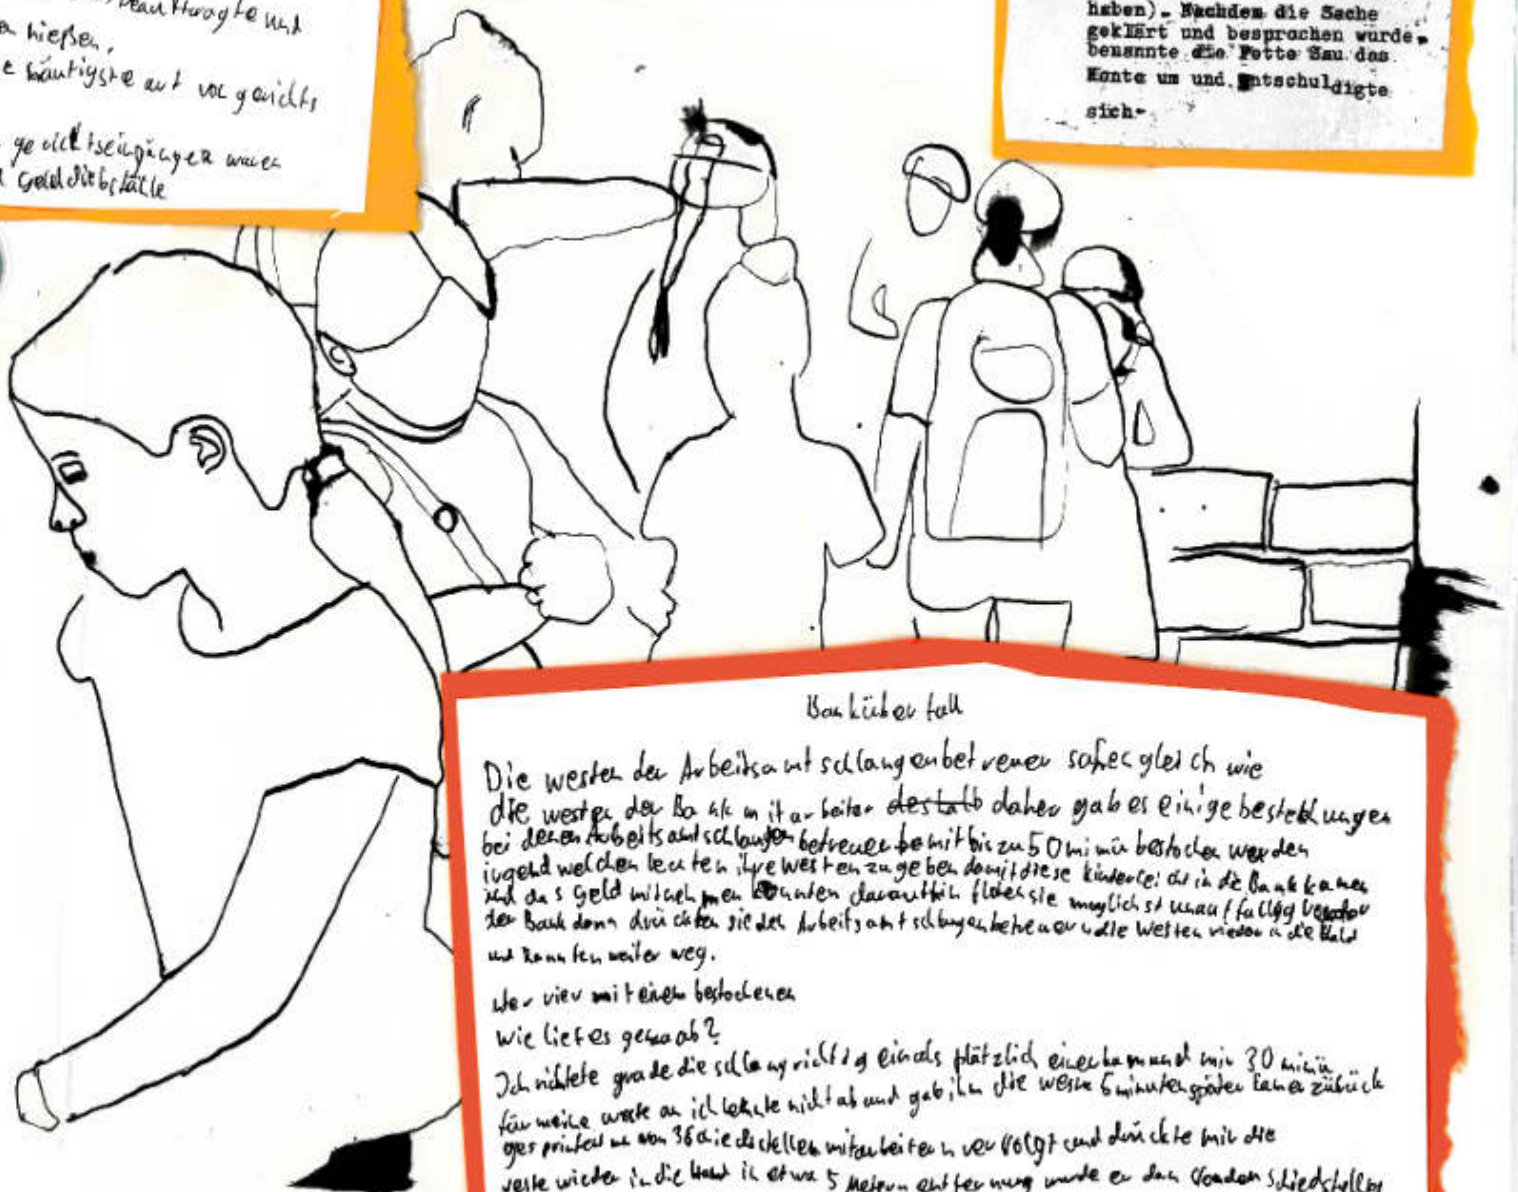 und
hießen,
häufigste art vor gerichts
waren
Gelddiebställe
haben). Nachdem die Sache
geklärt und besprochen wurde,
benannte die Fette Sau das
Konto um und entschuldigte
sich.
Banküberfall
Die westen der Arbeitsamtschlangenbetreuer sahen gleich wie
die westen der Bank mitarbeiter deshalb daher gab es einige bestechungen
bei denen Arbeitsamtschlangenbetreuer mit bis zu 50 mimü bestochen werden
irgend welchen leuten ihre westen zu geben damit diese kinder leicht in die Bank kamen
und das Geld mitnehmen konnten daraufhin flohen sie möglichst unauffällig
der Bank dann drückten sie den Arbeitsamtschlangenbetreuern die westen wieder in die Hand
und rannten weiter weg.
mit einem bestochenen
wie lief es genau ab?
Ich richtete grade die schlang richtig ein als plätzlich einer kam und mir 30 mimü
für meine weste an ich lehnte nicht ab und gab ihm die weste 5 minuten später kam er zübück
gesprintet von 3 Schiedstellenmitarbeitern vervolgt und drückte mir die
weste wieder in die Hand in etwa 5 Metern entfernung wurde er dan von den Schiedstellen